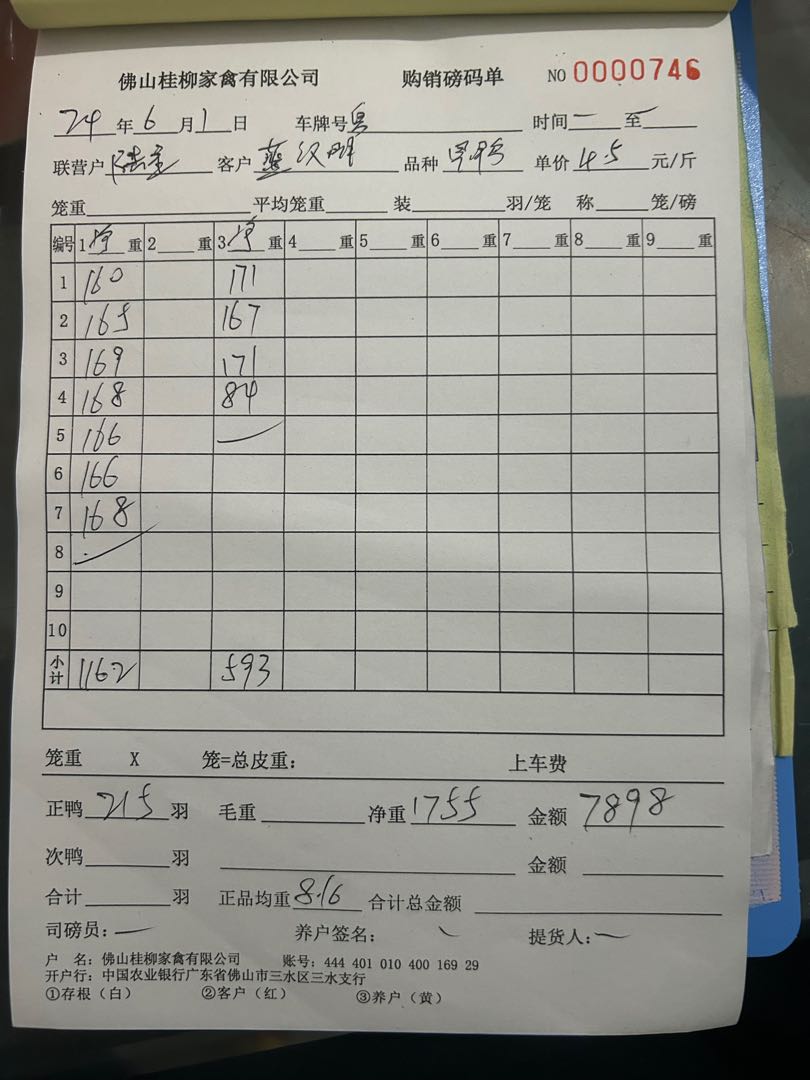 佛山桂柳家禽有限公司 购销磅码单 NO 0000746
24 年 6 月 1 日 车牌号 时间 一 至 一
联营户 客户 品种 单价 4.5 元/斤
笼重 平均笼重 装 羽/笼 称 笼/磅
编号 1 净 重 2 重 3 净 重 4 重 5 重 6 重 7 重 8 重 9 重
1 160 171
2 165 167
3 169 171
4 168 84
5 166
6 166
7 168
8
9
10
小计 1162 593
笼重 X 笼=总皮重： 上车费
正鸭 215 羽 毛重 净重 1755 金额 7898
次鸭 羽 金额
合计 羽 正品均重 8.16 合计总金额
司磅员： 养户签名： 提货人：
户 名：佛山桂柳家禽有限公司 账号：444 401 010 400 169 29
开户行：中国农业银行广东省佛山市三水区三水支行
①存根（白） ②客户（红） ③养户（黄）